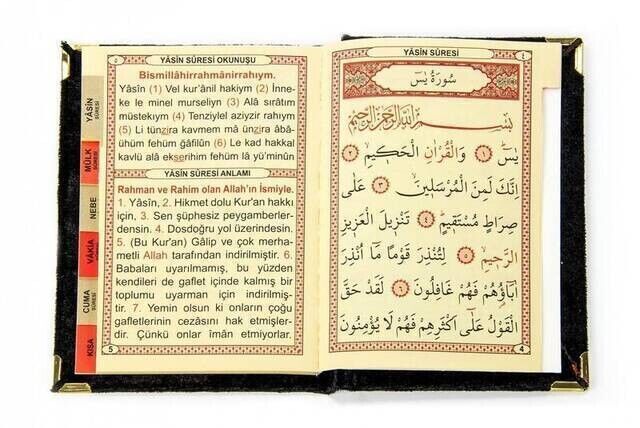 YÂSÎN SÛRESİ OKUNUŞU
Bismillâhirrahmânirrahıym.
Yâsîn (1) Vel kur'ânil hakiym (2) İnne-
ke le minel murseliyn (3) Alâ sırâtım
müstekıym (4) Tenziylel aziyzir rahıym
(5) Li tünzira kavmem mâ ünzira âbâ-
ühüm fehüm ğâfilûn (6) Le kad hakkal
kavlü alâ ekserihim fehüm lâ yü'minûn
YÂSÎN SÛRESİ ANLAMI
Rahman ve Rahim olan Allah'ın İsmiyle.
1. Yâsîn, 2. Hikmet dolu Kur'an hakkı
için, 3. Sen şüphesiz peygamberler-
densin. 4. Dosdoğru yol üzerindesin.
5. (Bu Kur'an) Gâlip ve çok merha-
metli Allah tarafından indirilmiştir. 6.
Babaları uyarılmamış, bu yüzden
kendileri de gaflet içinde kalmış bir
toplumu uyarman için indirilmiş-
tir. 7. Yemin olsun ki onların çoğu
gafletlerinin cezasını hak etmişler-
dir. Çünkü onlar îmân etmiyorlar.
5
YÂSÎN SÛRESİ
MÜLK SÛRESİ
NEBE
VÂKIA SÛRESİ
CUMA SÛRESİ
KISA
YÂSÎN SÛRESİ
٤
سُورَةُ يٰسٓ
بِسْمِ اللّٰهِ الرَّحْمٰنِ الرَّحِيمِ
يٰسٓ ﴿١﴾ وَالْقُرْاٰنِ الْحَكِيمِ ﴿٢﴾
اِنَّكَ لَمِنَ الْمُرْسَلِينَ ﴿٣﴾ عَلٰى
صِرَاطٍ مُسْتَقِيمٍ ﴿٤﴾ تَنْزِيلَ الْعَزِيزِ
الرَّحِيمِ ﴿٥﴾ لِتُنْذِرَ قَوْمًا مَٓا اُنْذِرَ
اٰبَٓاؤُهُمْ فَهُمْ غَافِلُونَ ﴿٦﴾ لَقَدْ حَقَّ
الْقَوْلُ عَلٰٓى اَكْثَرِهِمْ فَهُمْ لَا يُؤْمِنُونَ
4